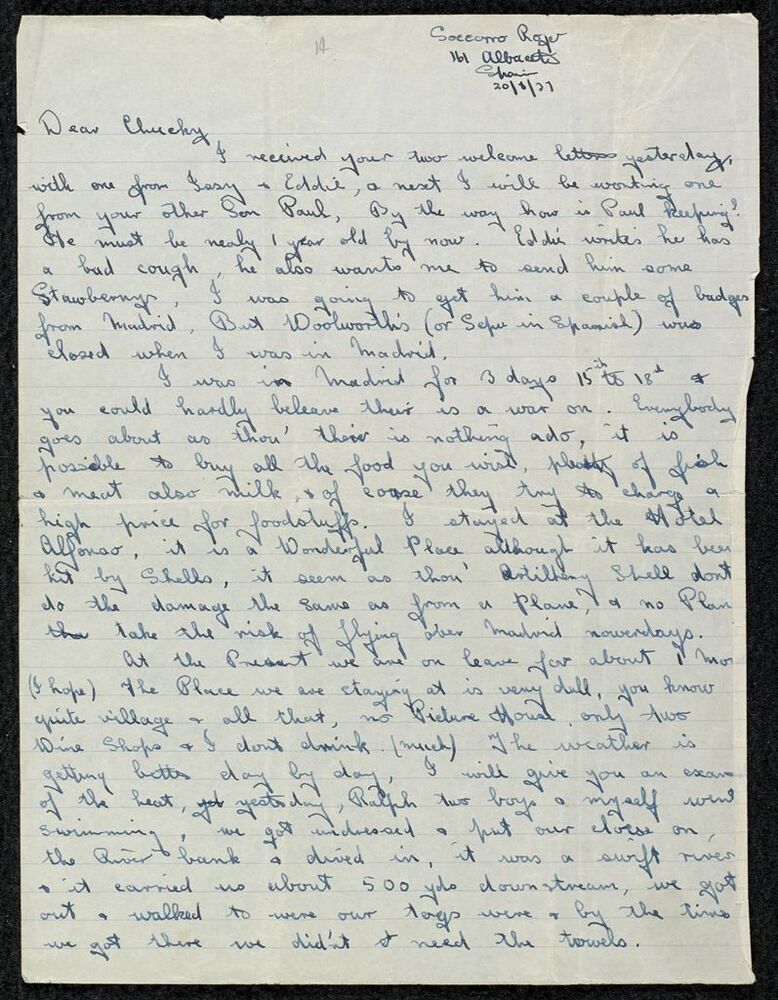 14
Soccorro Rojo
161 Albacete
Spain
20/5/37
Dear Chucky
I received your two welcome letters yesterday,
with one from Issy & Eddie, a next I will be wonting one
from your other Son Paul, By the way how is Paul keeping?
He must be nealy 1 year old by now. Eddie writes he has
a bad cough, he also wants me to send him some
Stawberrys, I was going to get him a couple of badges
from Madrid, But Woolworth's (or Sepu in Spanish) was
closed when I was in Madrid.
I was in Madrid for 3 days 15th to 18th &
you could hardly beleave their is a war on. Everybody
goes about as thou' their is nothing ado, it is
possible to buy all the food you wist, plenty of fish
& meat also milk, & of corse they try to charge a
high price for foodstuffs. I stayed at the Hotel
Alfonso, it is a Wonderful Place although it has been
hit by Shells, it seem as thou' Artilhery Shell dont
do the damage the same as from a Plane, & no Plan
tha take the risk of flying over Madrid nowerdays.
At the Present we are on leave for about 1 Mo
(I hope) The Place we are staying at is very dull, you know
quite village & all that, no Picture House, only two
Wine Shops & I dont drink. (much) The weather is
getting bette day by day, I will give you an exam
of the heat, yesterday, Ralph two boys & myself went
swimming, we got undressed & put our cloese on,
the River bank & dived in, it was a swift river
& it carried us about 500 yds downstream, we got
out & walked to were our togs were & by the time
we got there we did'nt need the towels.